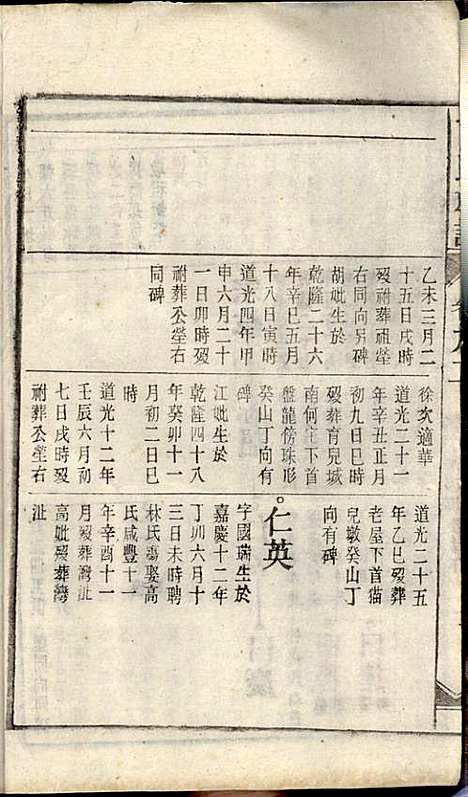 乙未三月二
十五日戌時
歿祔葬祖塋
右同向另碑
胡妣生於
乾隆二十六
年辛巳五月
十八日寅時
道光四年甲
申六月二十
一日卯時歿
祔葬公塋右
同碑
徐次適華
道光二十一
年辛丑正月
初九日巳時
歿葬育兒城
南何上下首
盤龍傍珠形
癸山丁向有
碑
江妣生於
乾隆四十八
年癸卯十一
月初二日巳
時
道光十二年
壬辰六月初
七日戌時歿
祔葬公塋右
道光二十五
年乙巳歿葬
老屋下首猫
兒墩癸山丁
向有碑
仁英
字國瑞生於
嘉慶十二年
丁卯六月十
三日未時聘
林氏殤娶高
氏咸豐十一
年辛酉十一
月歿葬灣沚
高妣歿葬灣
沚